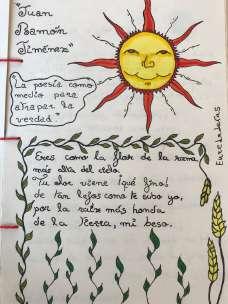 "Juan
Ramón
Jiménez"
"La poesía como
medio para
atrapar la
verdad."
Eres como la flor de la rama
más alta del cielo.
Tu olor viene ¡qué fino!
de tan lejos como te subo yo,
por la raíz más honda
de la tierra, mi beso.